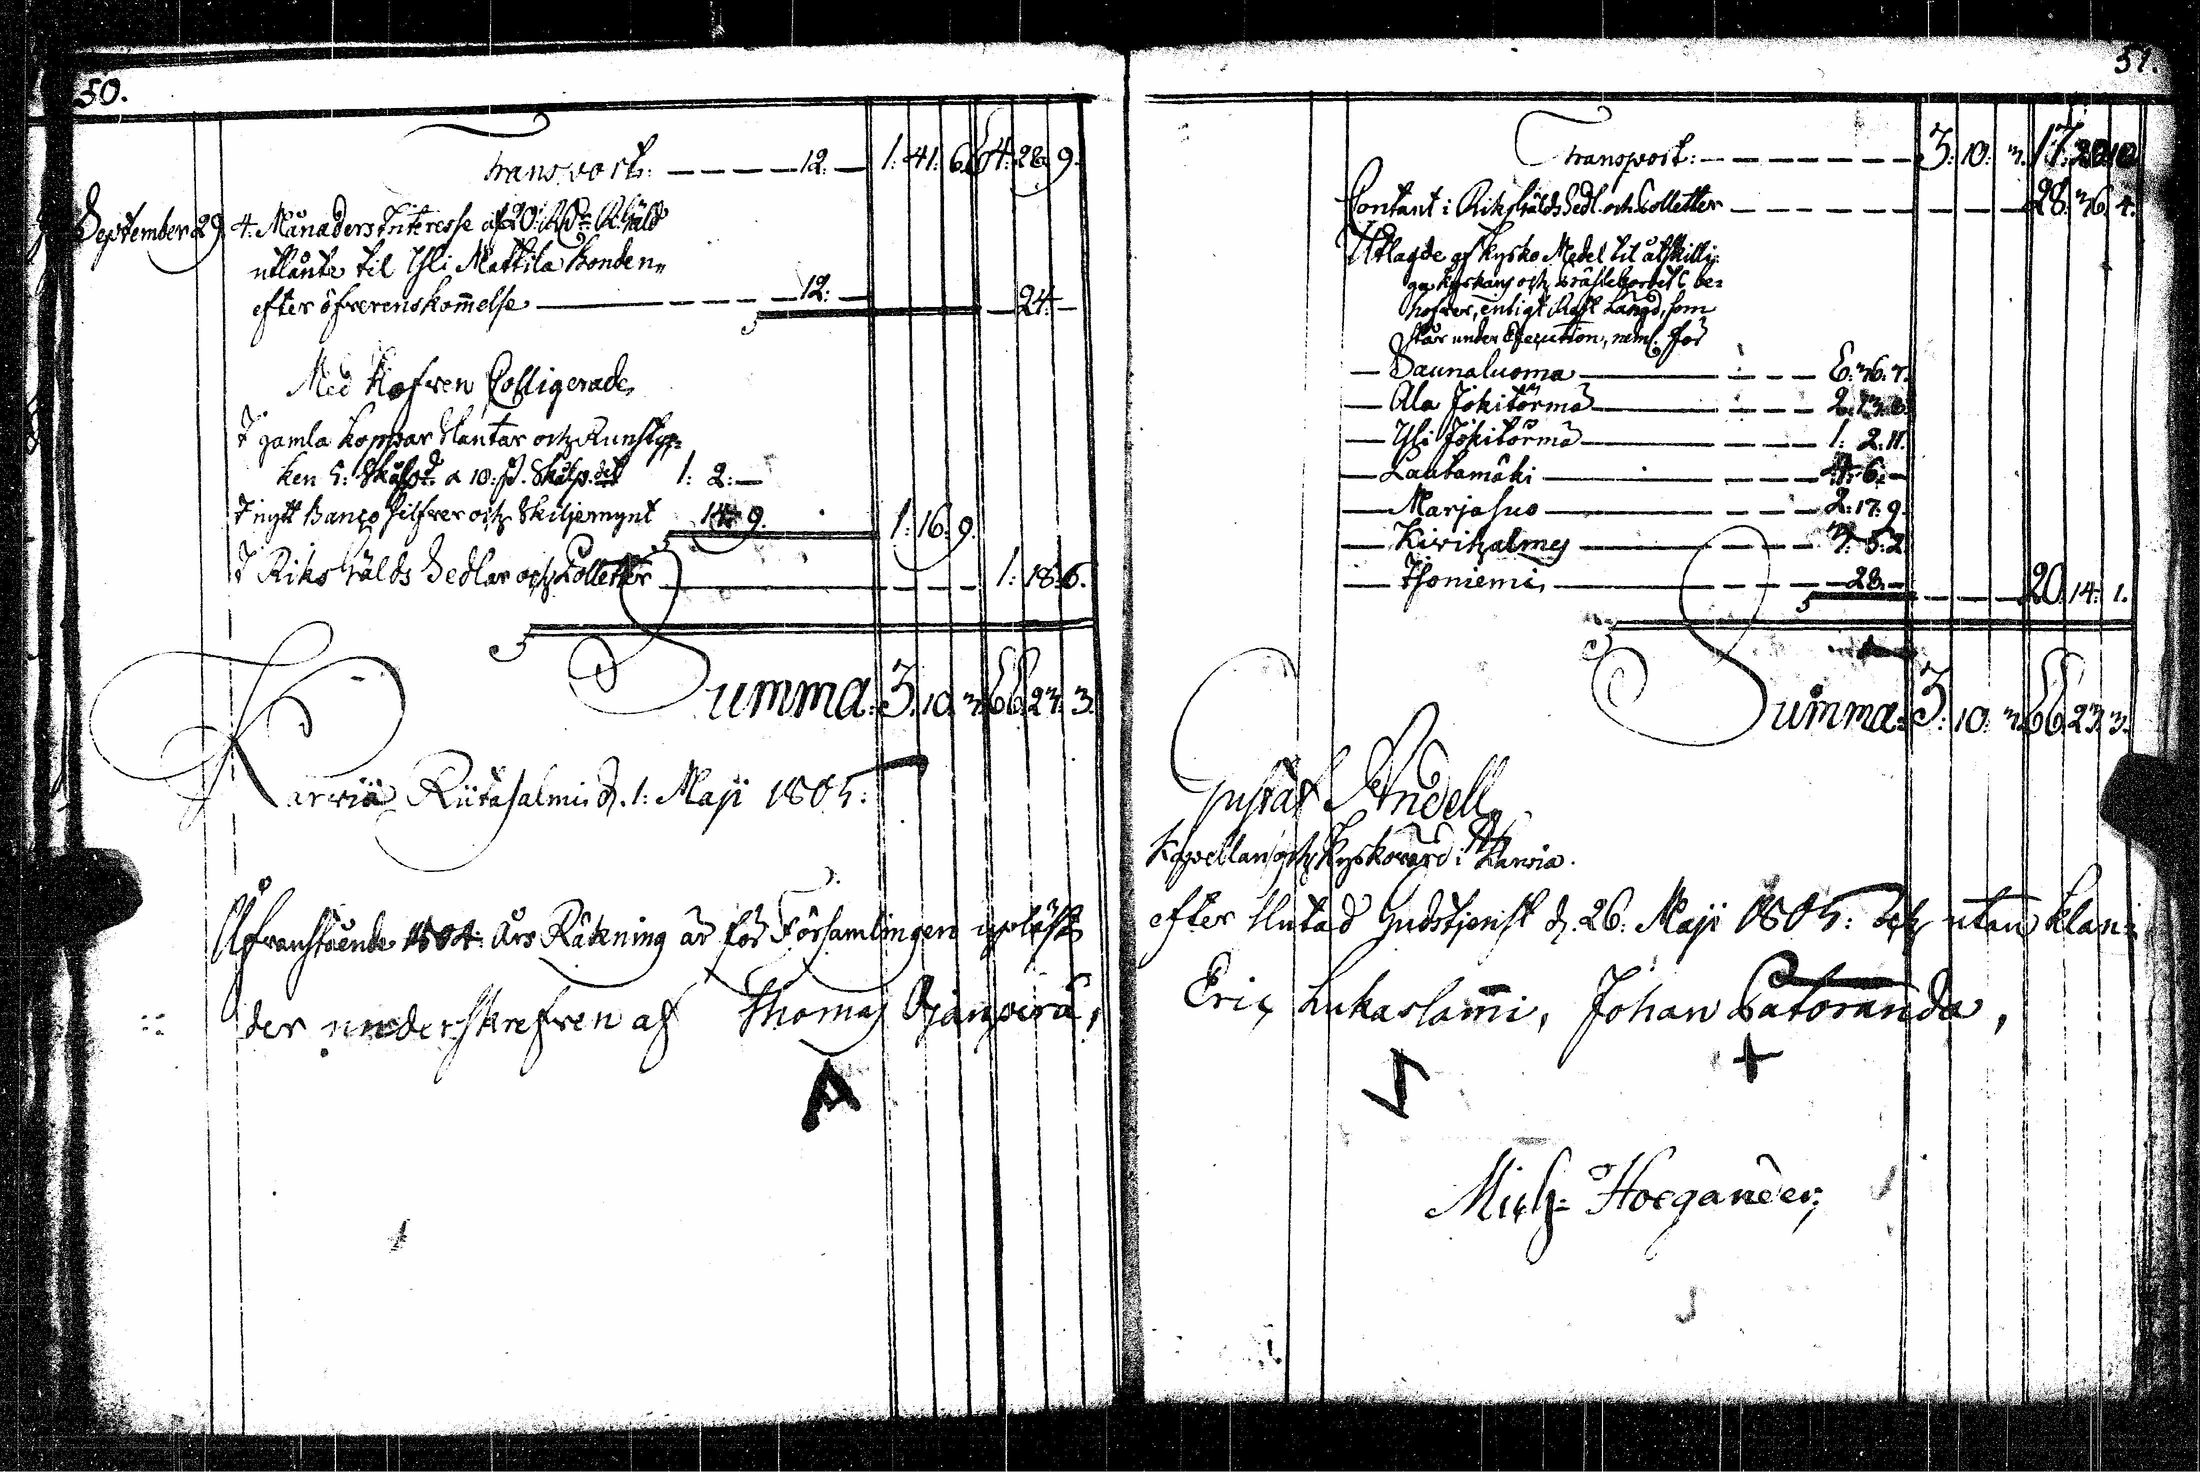 50.
Transport: — — — 12. — 1: 41: 6. 64: 28. 9.
September 29. 4. Månaders Interesse af 20: R:Gäld
utlånte til Yli Mattila Bonden
efter öfverenskom̄else — — — 12: — — 24: —
Med Hafven Colligerade,
I gamla koppar Slantar och Runsty-
ken 5: Skålp:d a 10: ß. Skålp:det 1: 2: —
I nytt Banco Silfver och Skiljemynt 14: 9. 1: 16: 9.
I Riks Gälds Sedlar och Polletter — — — 1: 18: 6.
Summa: 3: 10: 3. 66: 23: 3.
Karvia Riitasalmi d. 1: Maji 1805:
Åfvanstående 1804: Års Räkning är för Församlingen upläst
der underskrefven af Thomas Ojanperä,
51.
Transport: — — — 3: 10: 3. 17: 20: 10
Contant i Riks Gälds Sedl. och Polletter — — — 28: 36: 4.
Utlagde af Kyrko Medel til åtskilli-
ga Kyrkans och Prästebordets be-
hofver, enligt Rest Längd, som
står under Execution, neml. för
— Saunaluoma — — — 6: 36: 7.
— Ala Jokitörmä — — —
— Yli Jokitörmä — — — 1: 2: 11.
— Lautamäki — — — 6: —
— Marjasuo — — — 2: 17: 9.
— Kirvihalmes — — — 3: 5: 2.
— Isoniemi, — — — 28. — — — 20: 14: 1.
Summa: 3: 10: 3. 66: 23: 3.
Gustaf Andell
Kapellan och Kyrkovärd i Karvia.
efter slutad Gudstjenst d. 26: Maji 1805: och utan klan-
Eric Lukaslam̄i, Johan Satoranda,
Mich: Hoegander,